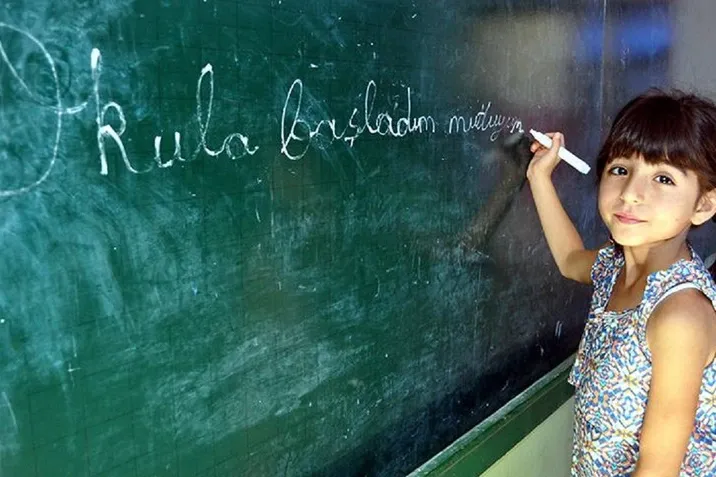 Okula başladım mutluyum